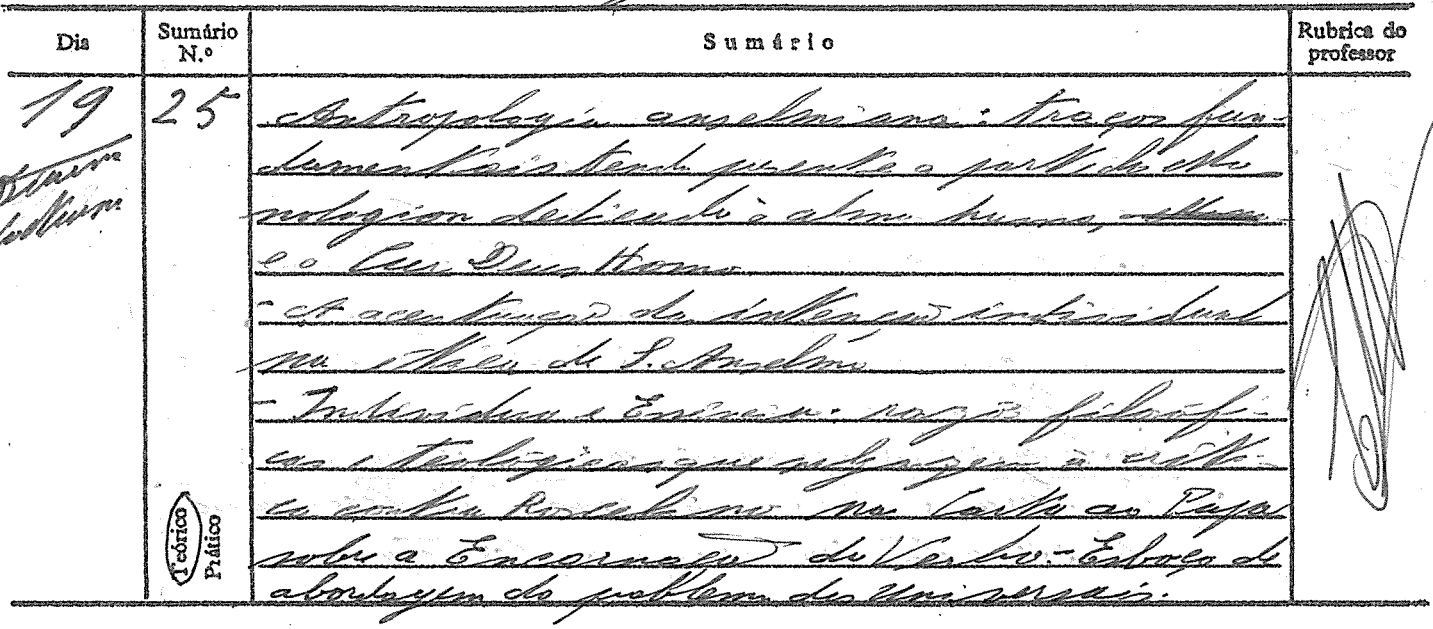 Dia
Sumário N.º
Sumário
Rubrica do professor
19
25
Antropologia anselmiana: traços fun-
damentais tendo presente a partida do Mo
nologion dedicada à alma humana,
e o Cur Deus Homo
- A acentuação da intenção individual
na ética de S. Anselmo
- Indivíduo e Essência: razões filosófi-
cas e teológicas que subjazem à críti-
ca contra Roscelino na Carta ao Papa
sobre a Encarnação do Verbo. - Esboço de
abordagem do problema dos universais.
Teórico
Prático